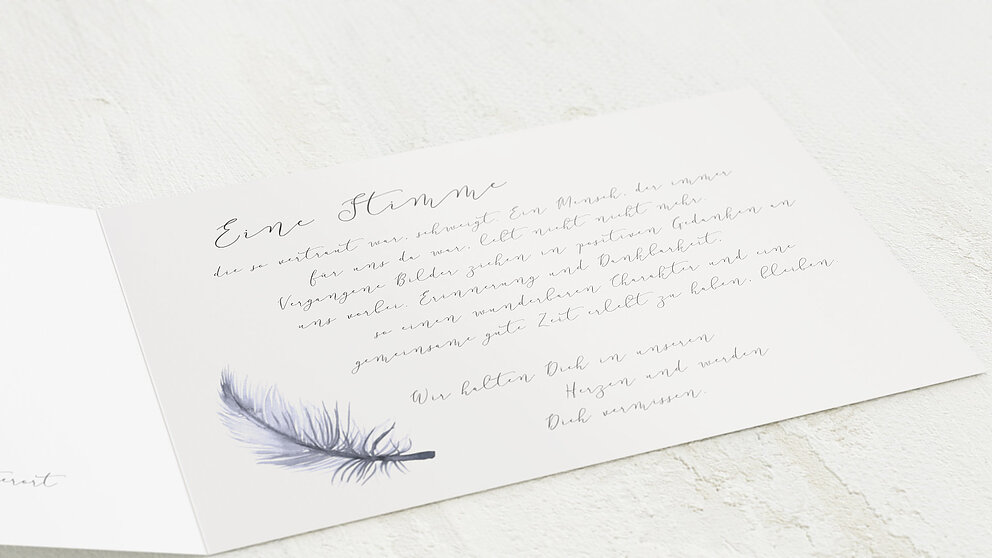 Eine Stimme
die so vertraut war, schweigt. Ein Mensch, der immer
für uns da war, lebt nicht nicht mehr.
Vergangene Bilder ziehen in positiven Gedanken an
uns vorbei. Erinnerung und Dankbarkeit,
so einen wunderbaren Charakter und eine
gemeinsame gute Zeit erlebt zu haben, bleiben.
Wir halten Dich in unseren
Herzen und werden
Dich vermissen.